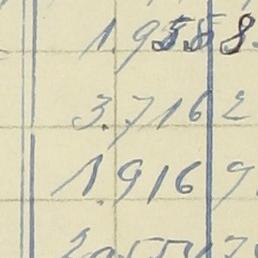 1.9588
3.7162
1.9169